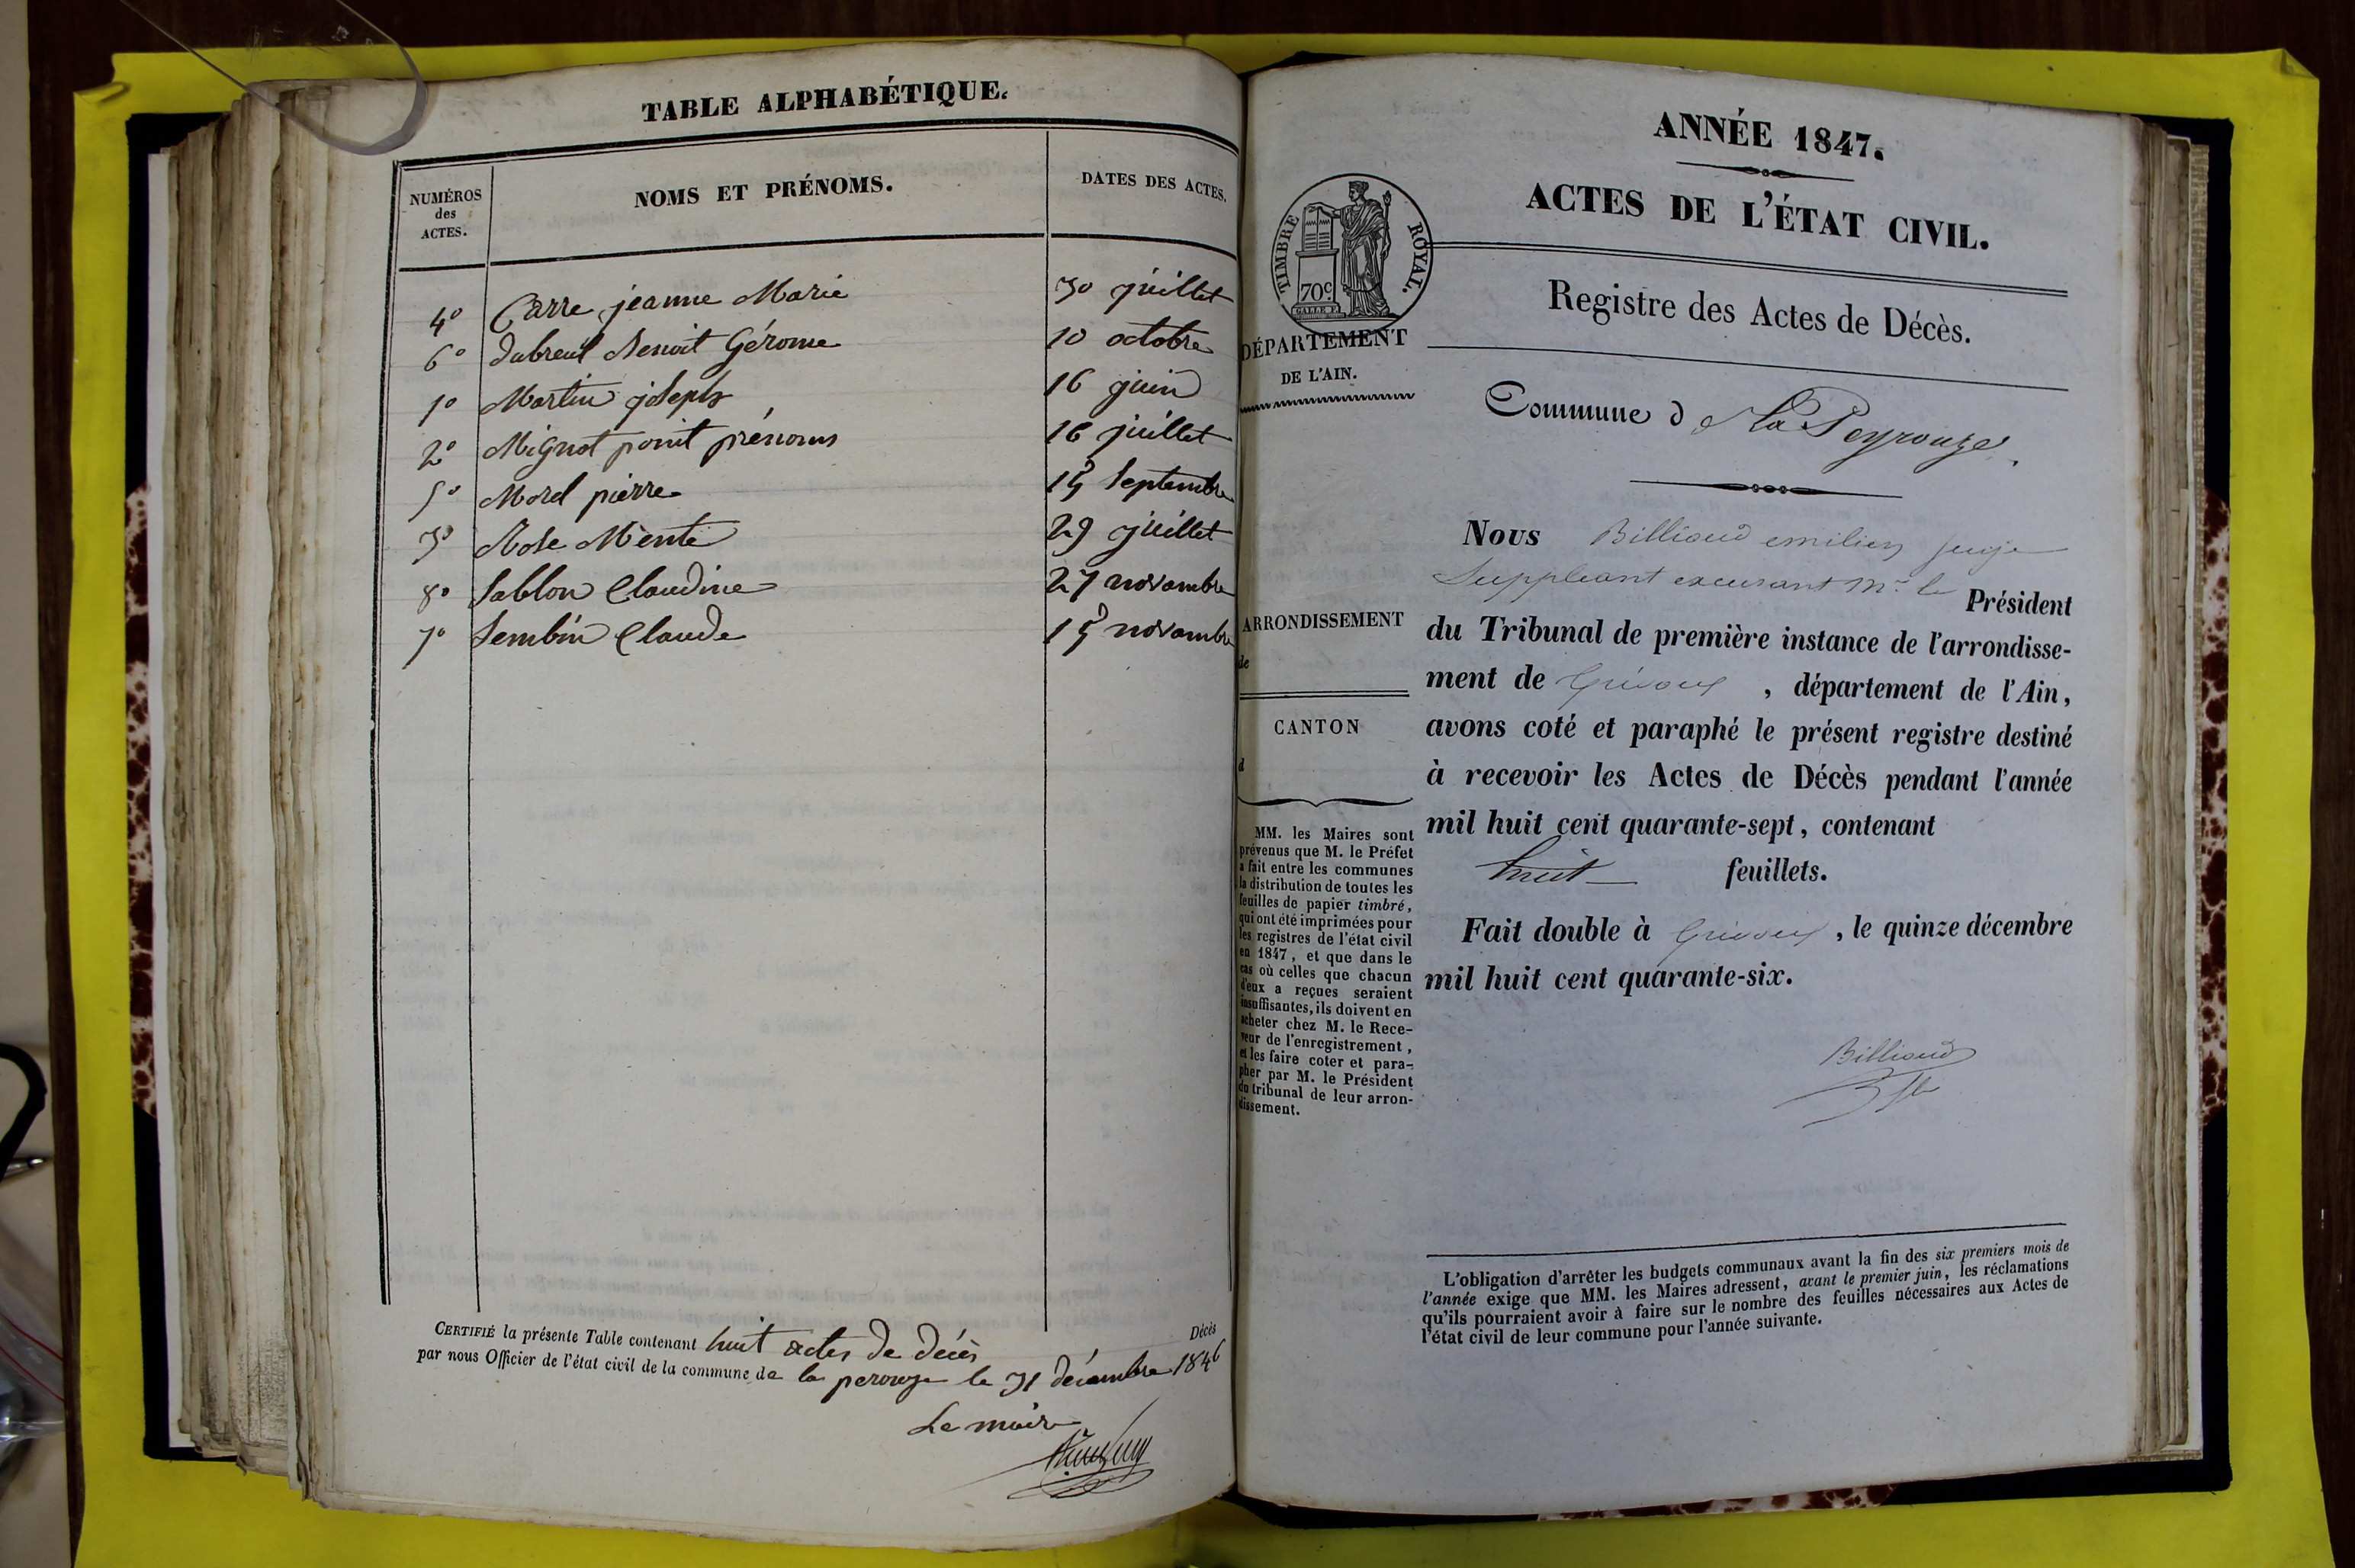 TABLE ALPHABÉTIQUE.
NUMÉROS
des
ACTES.
NOMS ET PRÉNOMS.
DATES DES ACTES.
4° Carre jeanne Marie 30 juillet
6° dubreuil Benoit Gérome 10 octobre
1° Martin joseph 16 juin
2° Mignot point prénoms 16 juillet
5° Morel pierre 15 Septembre
3° Rose Mente 29 juillet
8° Sablon Claudine 27 novambre
7° Sembin Claude 15 novambre
CERTIFIÉ la présente Table contenant huit actes de décès Décès
par nous Officier de l'état civil de la commune de la perouze le 31 décembre 1846
Le maire
ANNÉE 1847.
ACTES DE L'ÉTAT CIVIL.
TIMBRE ROYAL.
70c
GALLE F.
DÉPARTEMENT
DE L'AIN.
ARRONDISSEMENT
de
CANTON
d
MM. les Maires sont
prévenus que M. le Préfet
a fait entre les communes
la distribution de toutes les
feuilles de papier timbré,
qui ont été imprimées pour
les registres de l'état civil
en 1847, et que dans le
cas où celles que chacun
d'eux a reçues seraient
insuffisantes, ils doivent en
acheter chez M. le Rece-
veur de l'enregistrement,
et les faire coter et para-
pher par M. le Président
du tribunal de leur arron-
dissement.
Registre des Actes de Décès.
Commune d La Peyrouze
Nous Billioud emilien juge
Suppléant excusant Mr le Président
du Tribunal de première instance de l'arrondisse-
ment de Trévoux, département de l'Ain,
avons coté et paraphé le présent registre destiné
à recevoir les Actes de Décès pendant l'année
mil huit cent quarante-sept, contenant
huit feuillets.
Fait double à Trévoux, le quinze décembre
mil huit cent quarante-six.
Billioud
L'obligation d'arrêter les budgets communaux avant la fin des six premiers mois de
l'année exige que MM. les Maires adressent, avant le premier juin, les réclamations
qu'ils pourraient avoir à faire sur le nombre des feuilles nécessaires aux Actes de
l'état civil de leur commune pour l'année suivante.